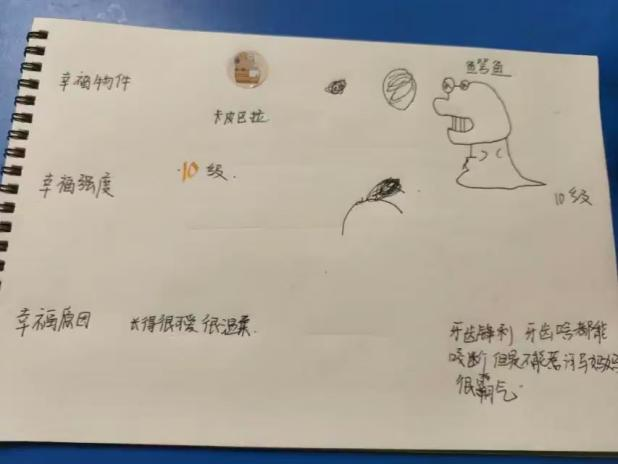 幸福物件
卡皮巴拉
鳄鱼
幸福强度
10级.
10级
幸福原因
长得很可爱 很温柔.
牙齿锋利 牙齿啥都能
咬断 但是不能惹河马妈妈
很霸气.